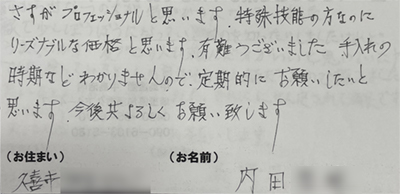 さすがプロフェッショナルと思います。特殊技能の方なのに
リーズナブルな価格と思います。有難うございました 手入れの
時期などわかりませんので、定期的にお願いしたいと
思います。今後共よろしくお願い致します
(お住まい) (お名前)
内田